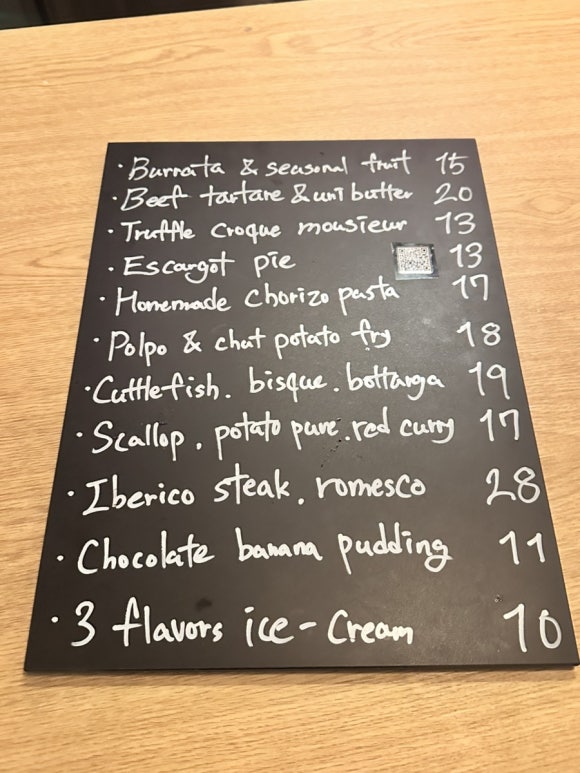 · Burrata & seasonal fruit 15
· Beef tartare & uni butter 20
· Truffle croque mousieur 13
· Escargot pie 13
· Homemade chorizo pasta 17
· Polpo & chat potato fry 18
· Cuttlefish. bisque. bottarga 19
· Scallop. potato pure. red curry 17
· Iberico steak. romesco 28
· Chocolate banana pudding 11
· 3 flavors ice-cream 10